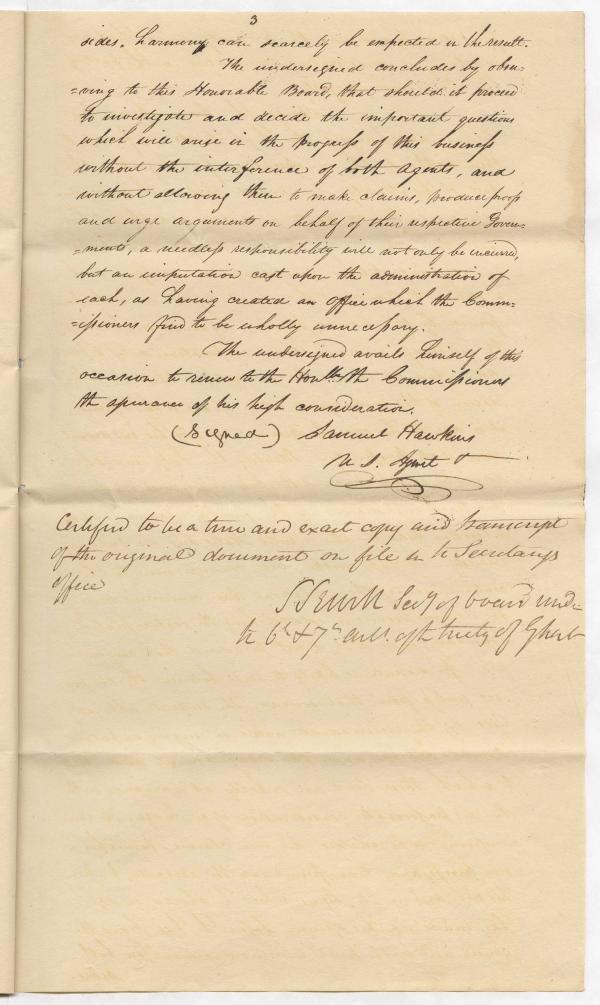 3
sides, harmony can scarcely be expected in the result.
The undersigned concludes by obser=
=ving to this Honorable Board, that should it proceed
to investigate and decide the important questions
which will arise in the progress of this business
without the interference of both Agents, and
without allowing them to make claims, produce proofs
and urge arguments on behalf of their respective Govern=
=ments, a needless responsibility will not only be incurred,
but an imputation cast upon the administration of
each, as having created an office which the Comm=
=issioners find to be wholly unnecessary.
The undersigned avails himself of this
occasion to renew to the Honble the Commissioners
the assurance of his high consideration.
(Signed) Samuel Hawkins
U S. Agent
Certified to be a true and exact copy and transcript
of the original document on file in the Secretarys
office
Secy of board und=
the 6th & 7th arts. of the treaty of Ghent